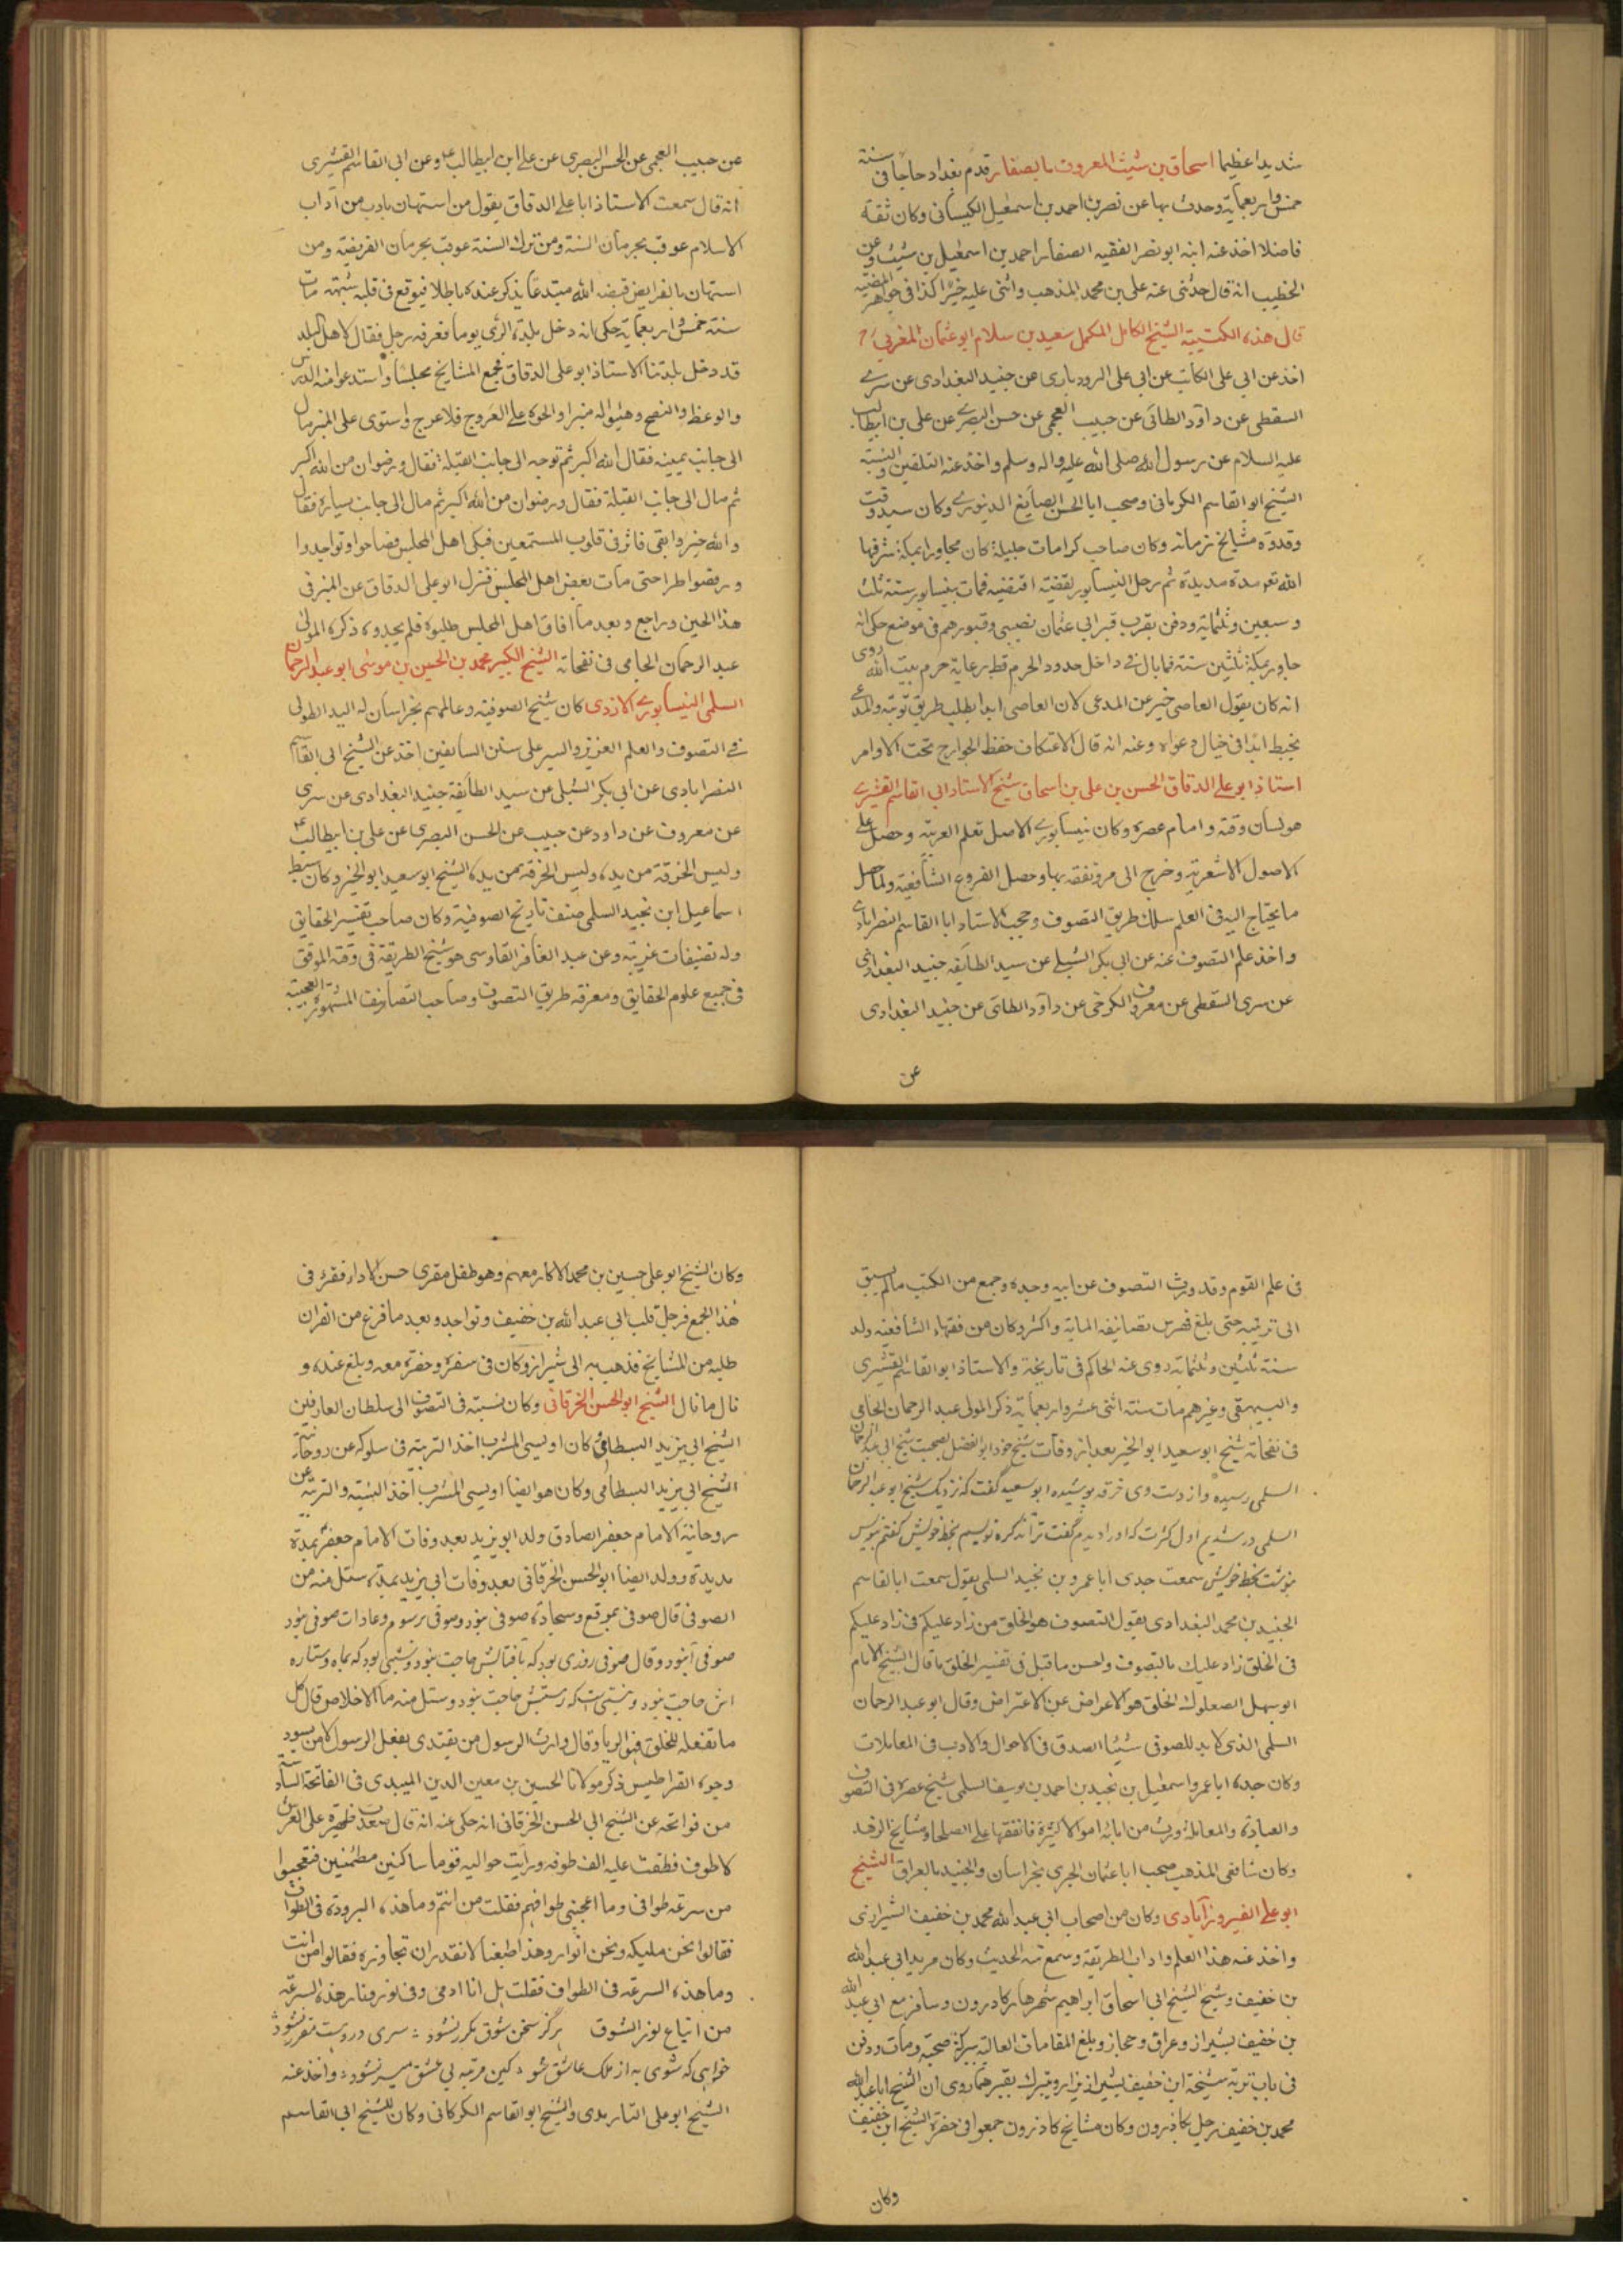 شديدا عظيما اسحاق بن شيث المعروف بالصفار قدم بغداد حاجا فى سنة
خمس واربعماية وحدث بها عن نصر بن احمد بن اسمعيل الكيسانى وكان ثقة
فاضلا اخذ عنه ابنه ابو نصر الفقيه الصفار احمد بن اسمعيل بن شيث وعن
الخطيب انه قال حدثنى عنه على بن محمد المذهب واثنى عليه خيرا كذا فى جواهر المضيه
قال هذه الكتيبة الشيخ الكامل المكمل سعيد بن سلام ابو عثمان المغربي
اخذ عن ابى على الكاتب عن ابى على الرودبارى عن جنيد البغدادى عن سرى
السقطى عن داود الطائى عن حبيب العجمى عن حسن البصرى عن على بن ابيطالب
عليه السلام عن رسول الله صلى الله عليه واله وسلم واخذ عنه التلقين والنسبة
الشيخ ابو القاسم الكركانى وصحب ابا الحسن الصايغ الدينورى وكان سيد وقت
وقدوة مشايخ زمانه وكان صاحب كرامات جليلة كان مجاورا بمكة شرفها
الله تعو مدة مديدة ثم رحل النيسابور لقضية اقتضيه فمات بنيسابور سنة ثلث
وسبعين وثلثماية ودفن بقرب قبر ابى عثمان نصيبى وقبورهم فى موضع حكى انه
جاور بمكة ثلثين سنة فما بال فى داخل حدود الحرم قط رعاية حرم بيت الله روى
انه كان يقول العاصى خير من المدعى لان العاصى ابدا يطلب طريق توبته والمدعى
يخبط ابدا فى خيال دعواه وعنه انه قال الاعتكاف حفظ الجوارح تحت الاوامر
استاذ ابو على الدقاق الحسن بن على بن اسحاق شيخ الاستاد ابى القاسم القشيرى
هو لسان وقته وامام عصره وكان نيسابورى الاصل تعلم العربية وحصل على
الاصول الاشعرية وخرج الى مرو تفقه بها وحصل الفروع الشافعية ولما حصل
ما يحتاج اليه فى العلم سلك طريق التصوف وصحب الاستاد ابا القاسم النصرابادى
واخذ علم التصوف عنه عن ابى بكر الشبلى عن سيد الطايفه جنيد البغدادى
عن سرى السقطى عن معروف الكرخى عن داود الطائى عن جنيد البغدادى
عن
عن حبيب العجمى عن الحسن البصرى عن على ابن ابيطالب وعن ابى القاسم القشيرى
انه قال سمعت الاستاذ ابا على الدقاق يقول من استهان بادب من آداب
الاسلام عوقب بحرمان السنة ومن ترك السنة عوقب بحرمان الفريضة ومن
استهان بالفرايض قيض الله مبتدعا يذكر عنده باطلا فيوقع فى قلبه شبهة مات
سنة خمس واربعماية حكى انه دخل بلدة الرى يوما فعرفه رجل فقال لاهل البلد
قد دخل بلدتنا الاستاذ ابو على الدقاق فجمع المشايخ مجلسا واستدعوا منه الدرس
والوعظ والنصح وهيئوا له منبرا والحوه على العروج فلا عرج واستوى على المنبر مال
الى جانب يمينه فقال الله اكبر ثم توجه الى جانب القبلة فقال ورضوان من الله اكبر
ثم مال الى جانب القبلة فقال ورضوان من الله اكبر ثم مال الى جانب يساره فقال
والله خير وابقى فاثر فى قلوب المستمعين فبكى اهل المجلس فصاحوا وتواجدوا
ورقصوا طرا حتى مات بعض اهل المجلس فنزل ابو على الدقاق عن المنبر فى
هذا الحين وراجع وبعد ما افاق اهل المجلس طلبوه فلم يجدوه ذكره المولى
عبد الرحمان الجامى فى نفحاته الشيخ الكبير محمد بن الحسين بن موسى ابو عبد الرحمان
السلمى النيسابورى الازدى كان شيخ الصوفية وعالمهم بخراسان له اليد الطولى
فى التصوف والعلم الغزير والسير على سنن السابقين اخذ عن الشيخ ابى القاسم
النصرابادى عن ابى بكر الشبلى عن سيد الطايفة جنيد البغدادى عن سرى
عن معروف عن داود عن حبيب عن الحسن البصرى عن على بن ابيطالب
ولبس الخرقة من يده ولبس الخرقه من يده الشيخ ابو سعيد ابو الخير وكان سبط
اسماعيل ابن نجيد السلمى صنف تاريخ الصوفية وكان صاحب تفسير الحقايق
وله تصنيفات غريبه وعن عبد الغافر الفارسى هو شيخ الطريقة فى وقته الموفق
فى جميع علوم الحقايق ومعرفة طريق التصوف وصاحب التصانيف المشهورة العجيبة
فى علم القوم وقد ورث التصوف عن ابيه وجده وجمع من الكتب ما لم يسبق
الى ترتيبه حتى بلغ فهرس تصانيفه الماية واكثر وكان من فقهاء الشافعية ولد
سنة ثلثين وثلثماية روى عنه الحاكم فى تاريخه والاستاذ ابو القاسم القشيرى
والبيهقى وغيرهم مات سنة اثنى عشر واربعماية ذكر المولى عبد الرحمان الجامى
فى نفحاته شيخ ابو سعيد ابو الخير بعد از وفات شيخ خود ابو الفضل بصحبت شيخ ابى عبد الرحمان
السلمى رسيده واز دست وى خرقه پوشيده ابو سعيد گفت كه نزديك شيخ ابو عبد الرحمان
السلمى در شديم اول كرت كه او را ديدم گفت ترا تذكره نويسم بخط خويش گفتم بنويس
بنوشت بخط خويش سمعت جدى ابا عمرو بن نجيد السلمى يقول سمعت ابا القاسم
الجنيد بن محمد البغدادى يقول التصوف هو الخلق من زاد عليكم فى زاد عليكم
فى الخلق زاد عليك بالتصوف واحسن ما قيل فى تفسير الخلق ما قال الشيخ الامام
ابو سهل الصعلوك الخلق هو الاعراض عن الاعتراض وقال ابو عبد الرحمان
السلمى الذى لا بد للصوفى شيئا الصدق فى الاحوال والادب فى المعاملات
وكان جده ابا عمرو اسمعيل بن نجيد بن احمد بن يوسف السلمى شيخ عصره فى التصوف
والعبادة والمعاملة ورث من ابائه اموالا كثيرة فانفقها على الصلحاء ومشايخ الزهد
وكان شافعى المذهب صحب ابا عثمان الحيرى بخراسان والجنيد بالعراق الشيخ
ابو على الفيروزآبادى وكان من اصحاب ابى عبد الله محمد بن خفيف الشيرازى
واخذ عنه هذا العلم واداب الطريقة وسمع منه الحديث وكان مريد ابى عبد الله
بن خفيف وشيخ الشيخ ابى اسحاق ابراهيم شهريار كازرون وسافر مع ابى عبد الله
بن خفيف بشيراز وعراق وحجاز وبلغ المقامات العالية ببركة صحبته ومات ودفن
فى باب تربة شيخة ابن خفيف بشيراز يزار ويتبرك بقبرهما روى ان الشيخ ابا عبد الله
محمد بن خفيف رحل بكازرون وكان مشايخ كازرون جمعوا فى حضرة الشيخ ابن خفيف
وكان
وكان الشيخ ابو على حسين بن محمد الاكار معهم وهو طفل مقرى حسن الاداء فقرء فى
هذا الجمع فرجل قلب ابى عبد الله بن خفيف وتواجد وبعد ما فرغ من القران
طلبه من المشايخ فذهب به الى شيراز وكان فى سفره وحضره معه وبلغ عنده و
نال ما نال الشيخ ابو الحسن الخرقانى وكان نسبته فى التصوف الى سلطان العارفين
الشيخ ابى يزيد البسطامى كان اويسى المشرب اخذ التربية فى سلوكه عن روحانية
الشيخ ابى يزيد البسطامى وكان هو ايضا اويسى المشرب اخذ النسبة والتربية عن
روحانية الامام جعفر الصادق ولد ابو يزيد بعد وفات الامام جعفر بمدة
مديدة وولد ايضا ابو الحسن الخرقانى بعد وفات ابى يزيد بمدة سئل منه من
الصوفى قال صوفى بمرقع وسجاده صوفى نبود وصوفى برسوم وعادات صوفى نبود
صوفى آنبود وقال صوفى روزى بود كه بآفتابش حاجت نبود وشبى بود كه بماه وستاره
اش حاجت نبود ونيستى است كه بهستيش حاجت نبود وسئل منه ما الاخلاص قال كل
ما تفعله للخلق فهو الريا وقال وارث الرسول من يقتدى بفعل الرسول لا من يسود
وجوه القراطيس ذكر مولانا الحسين بن معين الدين الميبدى فى الفاتحة السابعة
من فواتحه عن الشيخ ابى الحسن الخرقانى انه حكى عنه انه قال صعدت ظهيرة على العرش
لاطوف فطفت عليه الف طوفه ورايت حواليه قوما ساكنين مطمئنين فتعجبوا
من سرعة طوافى وما اعجبنى طوافهم فقلت من انتم وما هذه البرودة فى الطواف
فقالوا نحن مليكه ونحن انوار وهذا طبعنا لا نقدر ان نجاوزه فقالوا من انت
وما هذه السرعة فى الطواف فقلت بل انا ادمى وفى نور ونار هذه السرعة
من اتباع نور الشوق هرگز سخن شوق مكرر نشود سرى در وست مقرر نشود
خواهى كه شوى به از ملك عاشق شو كين مرتبه بى عشق ميسر نشود واخذ عنه
الشيخ ابو على الفارمدى والشيخ ابو القاسم الكركانى وكان للشيخ ابى القاسم